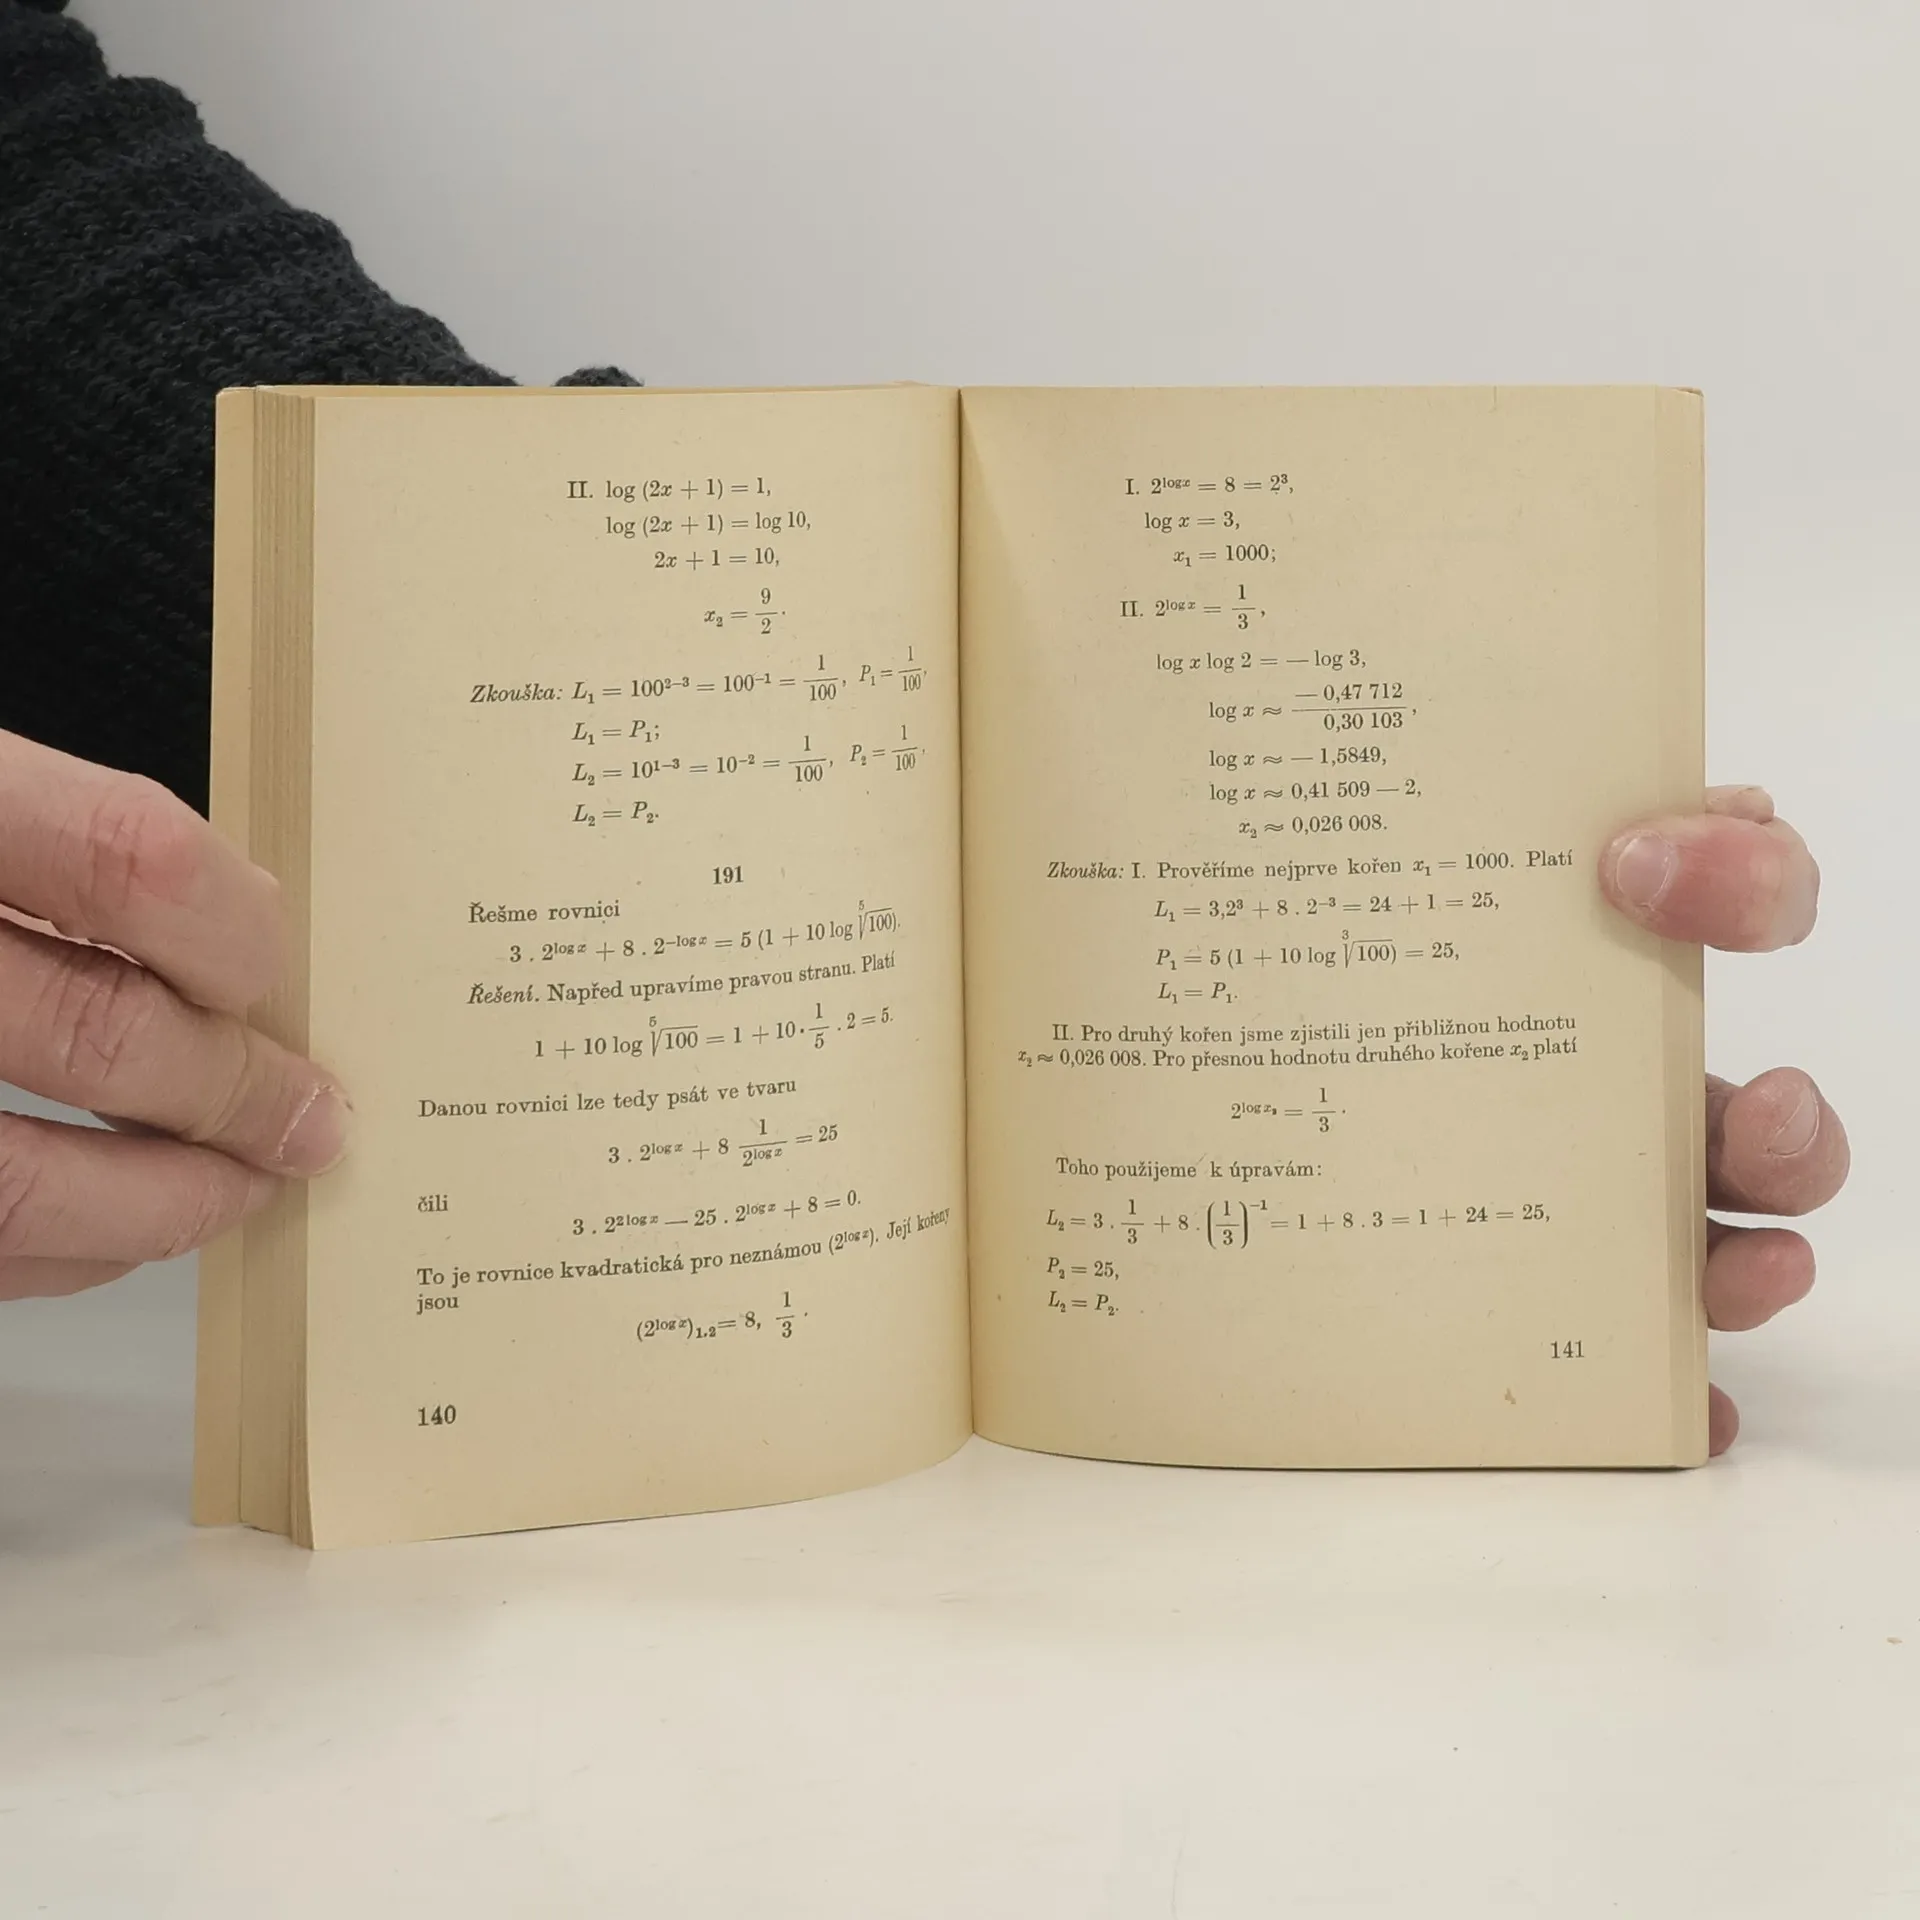 II. log (2x + 1) = 1,
log (2x + 1) = log 10,
2x + 1 = 10,
x₂ = 9/2.
Zkouška: L₁ = 100²⁻³ = 100⁻¹ = 1/100, P₁ = 1/100,
L₁ = P₁;
L₂ = 10¹⁻³ = 10⁻² = 1/100, P₂ = 1/100,
L₂ = P₂.
191
Řešme rovnici
3 . 2^(log x) + 8 . 2^(−log x) = 5 (1 + 10 log ⁵√100).
Řešení. Napřed upravíme pravou stranu. Platí
1 + 10 log ⁵√100 = 1 + 10 . 1/5 . 2 = 5.
Danou rovnici lze tedy psát ve tvaru
3 . 2^(log x) + 8 1/2^(log x) = 25
čili
3 . 2^(2 log x) — 25 . 2^(log x) + 8 = 0.
To je rovnice kvadratická pro neznámou (2^(log x)). Její kořeny
jsou
(2^(log x))₁.₂ = 8, 1/3.
140
I. 2^(log x) = 8 = 2³,
log x = 3,
x₁ = 1000;
II. 2^(log x) = 1/3,
log x log 2 = — log 3,
log x ≈ — 0,47 712/0,30 103,
log x ≈ — 1,5849,
log x ≈ 0,41 509 — 2,
x₂ ≈ 0,026 008.
Zkouška: I. Prověříme nejprve kořen x₁ = 1000. Platí
L₁ = 3,2³ + 8 . 2⁻³ = 24 + 1 = 25,
P₁ = 5 (1 + 10 log ³√100) = 25,
L₁ = P₁.
II. Pro druhý kořen jsme zjistili jen přibližnou hodnotu
x₂ ≈ 0,026 008. Pro přesnou hodnotu druhého kořene x₂ platí
2^(log x₂) = 1/3.
Toho použijeme k úpravám:
L₂ = 3 . 1/3 + 8 . (1/3)⁻¹ = 1 + 8 . 3 = 1 + 24 = 25,
P₂ = 25,
L₂ = P₂.
141